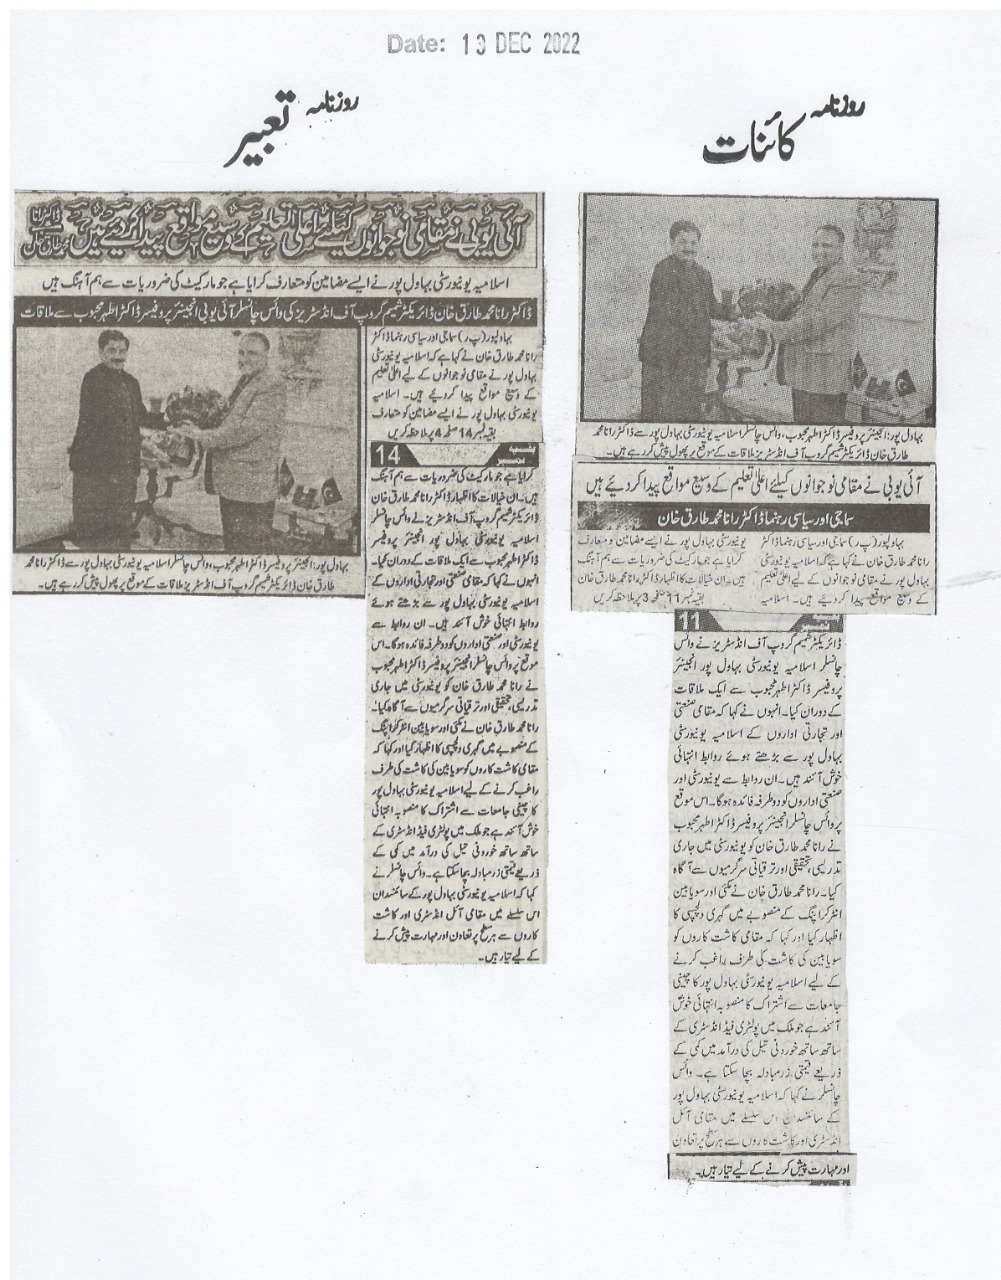 Date: 13 DEC 2022
روزنامہ کائنات
بہاول پور: انجینئر پروفیسر ڈاکٹر اطہر محبوب، وائس چانسلر اسلامیہ یونیورسٹی بہاول پور سے ڈاکٹر رانا محمد
طارق خان ڈائریکٹر شمیم گروپ آف انڈسٹریز ملاقات کے موقع پر پھول پیش کر رہے ہیں۔
آئی یو بی نے مقامی نوجوانوں کیلئے اعلیٰ تعلیم کے وسیع مواقع پیدا کر دیئے ہیں
سماجی اور سیاسی رہنما ڈاکٹر رانا محمد طارق خان
بہاولپور (پ ر) سماجی اور سیاسی رہنما ڈاکٹر
رانا محمد طارق خان نے کہا ہے کہ اسلامیہ یونیورسٹی
بہاول پور نے مقامی نوجوانوں کے لیے اعلیٰ تعلیم
کے وسیع مواقع پیدا کر دیئے ہیں۔ اسلامیہ
یونیورسٹی بہاول پور نے ایسے مضامین و متعارف
کرایا ہے جو مارکیٹ کی ضروریات سے ہم آہنگ
ہیں۔ ان خیالات کا اظہار ڈاکٹر رانا محمد طارق خان
بقیہ نمبر 11 صفحہ 3 پر ملاحظہ کریں
بقیہ نمبر 11
ڈائریکٹر شمیم گروپ آف انڈسٹریز نے وائس
چانسلر اسلامیہ یونیورسٹی بہاول پور انجینئر
پروفیسر ڈاکٹر اطہر محبوب سے ایک ملاقات
کے دوران کیا۔ انہوں نے کہا کہ مقامی صنعتی
اور تجارتی اداروں کے اسلامیہ یونیورسٹی
بہاول پور سے بڑھتے ہوئے روابط انتہائی
خوش آئند ہیں۔ ان روابط سے یونیورسٹی اور
صنعتی اداروں کو دو طرفہ فائدہ ہوگا۔ اس موقع
پر وائس چانسلر انجینئر پروفیسر ڈاکٹر اطہر محبوب
نے رانا محمد طارق خان کو یونیورسٹی میں جاری
تدریسی، تحقیقی اور ترقیاتی سرگرمیوں سے آگاہ
کیا۔ رانا محمد طارق خان نے مکئی اور سویابین
انٹرکراپنگ کے منصوبے میں گہری دلچسپی کا
اظہار کیا اور کہا کہ مقامی کاشت کاروں کو
سویابین کی کاشت کی طرف راغب کرنے
کے لیے اسلامیہ یونیورسٹی بہاول پور کا چینی
جامعات سے اشتراک کا منصوبہ انتہائی خوش
آئند ہے جو ملک میں پولٹری فیڈ انڈسٹری کے
ساتھ ساتھ خوردنی تیل کی درآمد میں کمی کے
ذریعے قیمتی زرمبادلہ بچا سکتا ہے۔ وائس
چانسلر نے کہا کہ اسلامیہ یونیورسٹی بہاول پور
کے سائنسدان اس سلسلے میں مقامی آئل
انڈسٹری اور کاشت کاروں سے ہر سطح پر تعاون
اور مہارت پیش کرنے کے لیے تیار ہیں۔
روزنامہ تعبیر
آئی یو بی نے مقامی نوجوانوں کیلئے اعلیٰ تعلیم کے وسیع مواقع پیدا کر دیئے ہیں ڈاکٹر رانا محمد طارق خان
اسلامیہ یونیورسٹی بہاول پور نے ایسے مضامین کو متعارف کرایا ہے جو مارکیٹ کی ضروریات سے ہم آہنگ ہیں
ڈاکٹر رانا محمد طارق خان ڈائریکٹر شمیم گروپ آف انڈسٹریز کی وائس چانسلر آئی یو بی انجینئر پروفیسر ڈاکٹر اطہر محبوب سے ملاقات
بہاولپور (پ ر) سماجی اور سیاسی رہنما ڈاکٹر
رانا محمد طارق خان نے کہا ہے کہ اسلامیہ یونیورسٹی
بہاول پور نے مقامی نوجوانوں کے لیے اعلیٰ تعلیم
کے وسیع مواقع پیدا کر دیئے ہیں۔ اسلامیہ
یونیورسٹی بہاول پور نے ایسے مضامین کو متعارف
بقیہ نمبر 14 صفحہ 4 پر ملاحظہ کریں
بقیہ نمبر 14
کرایا ہے جو مارکیٹ کی ضروریات سے ہم آہنگ
ہیں۔ ان خیالات کا اظہار ڈاکٹر رانا محمد طارق خان
ڈائریکٹر شمیم گروپ آف انڈسٹریز نے وائس چانسلر
اسلامیہ یونیورسٹی بہاول پور انجینئر پروفیسر
ڈاکٹر اطہر محبوب سے ایک ملاقات کے دوران کیا۔
انہوں نے کہا کہ مقامی صنعتی اور تجارتی اداروں کے
اسلامیہ یونیورسٹی بہاول پور سے بڑھتے ہوئے
روابط انتہائی خوش آئند ہیں۔ ان روابط سے
یونیورسٹی اور صنعتی اداروں کو دو طرفہ فائدہ ہوگا۔ اس
موقع پر وائس چانسلر انجینئر پروفیسر ڈاکٹر اطہر محبوب
نے رانا محمد طارق خان کو یونیورسٹی میں جاری
تدریسی، تحقیقی اور ترقیاتی سرگرمیوں سے آگاہ کیا۔
رانا محمد طارق خان نے مکئی اور سویابین انٹرکراپنگ
کے منصوبے میں گہری دلچسپی کا اظہار کیا اور کہا کہ
مقامی کاشت کاروں کو سویابین کی کاشت کی طرف
راغب کرنے کے لیے اسلامیہ یونیورسٹی بہاول پور
کا چینی جامعات سے اشتراک کا منصوبہ انتہائی
خوش آئند ہے جو ملک میں پولٹری فیڈ انڈسٹری کے
ساتھ ساتھ خوردنی تیل کی درآمد میں کمی کے
ذریعے قیمتی زرمبادلہ بچا سکتا ہے۔ وائس چانسلر نے
کہا کہ اسلامیہ یونیورسٹی بہاول پور کے سائنسدان
اس سلسلے میں مقامی آئل انڈسٹری اور کاشت
کاروں سے ہر سطح پر تعاون اور مہارت پیش کرنے
کے لیے تیار ہیں۔
بہاول پور: انجینئر پروفیسر ڈاکٹر اطہر محبوب، وائس چانسلر اسلامیہ یونیورسٹی بہاول پور سے ڈاکٹر رانا محمد
طارق خان ڈائریکٹر شمیم گروپ آف انڈسٹریز ملاقات کے موقع پر پھول پیش کر رہے ہیں۔